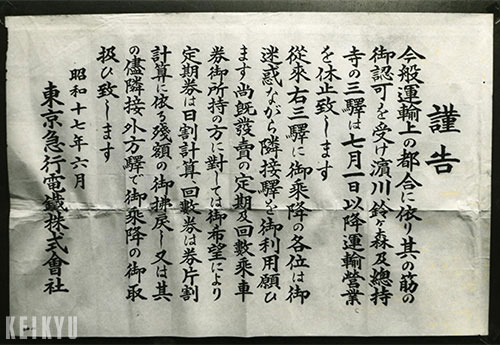 謹告
今般運輸上の都合に依り其の筋の
御認可を受け濱川、鈴ヶ森及總持
寺の三驛は七月一日以降運輸營業
を休止致します
從來右三驛に御乘降の各位は御
迷惑ながら隣接驛を御利用願ひ
ます尚既發賣の定期及回數乘車
券御所持の方に對しては御希望により
定期券は日割計算、回數券は券片割
計算に依る殘額の御拂戻し又は其
の儘隣接外方驛で御乘降の御取
扱ひ致します
昭和十七年六月
東京急行電鐵株式會社
KEIKYU